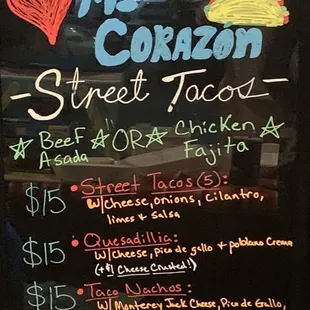 Mi
CORAZÓN
-Street Tacos-
Beef OR Chicken
Asada Fajita
$15 • Street Tacos (5):
w/Cheese, onions, cilantro,
limes & salsa
$15 • Quesadillia:
w/Cheese, Pico de gallo & poblano Crema
(+$1 Cheese Crusted!)
$15 • Taco Nachos:
w/Monterey Jack Cheese, Pico de Gallo,